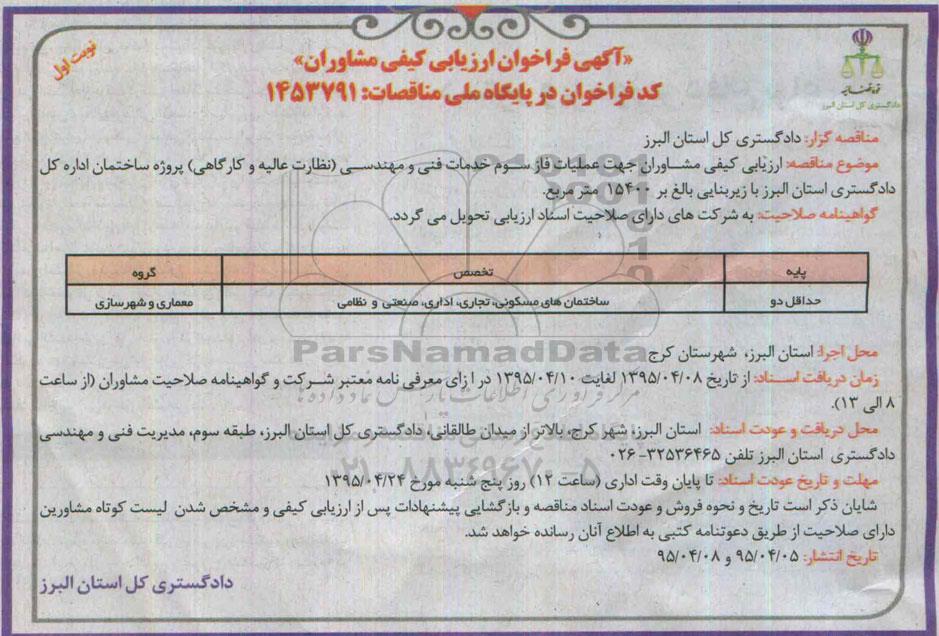 نوبت اول
«آگهی فراخوان ارزیابی کیفی مشاوران»
کد فراخوان در پایگاه ملی مناقصات: ۱۴۵۳۷۹۱
قوه قضائیه
دادگستری کل استان البرز
مناقصه گزار: دادگستری کل استان البرز
موضوع مناقصه: ارزیابی کیفی مشاوران جهت عملیات فاز سوم خدمات فنی و مهندسی (نظارت عالیه و کارگاهی) پروژه ساختمان اداره کل
دادگستری استان البرز با زیربنایی بالغ بر ۱۵۴۰۰ متر مربع.
گواهینامه صلاحیت: به شرکت های دارای صلاحیت اسناد ارزیابی تحویل می گردد.
پایه تخصص گروه
حداقل دو ساختمان های مسکونی، تجاری، اداری، صنعتی و نظامی معماری و شهرسازی
ParsNamadData
محل اجرا: استان البرز، شهرستان کرج
زمان دریافت اسناد: از تاریخ ۱۳۹۵/۰۴/۰۸ لغایت ۱۳۹۵/۰۴/۱۰ در ازای معرفی نامه معتبر شرکت و گواهینامه صلاحیت مشاوران (از ساعت
۸ الی ۱۳).
محل دریافت و عودت اسناد: استان البرز، شهر کرج، بالاتر از میدان طالقانی، دادگستری کل استان البرز، طبقه سوم، مدیریت فنی و مهندسی
دادگستری استان البرز تلفن ۳۲۵۳۶۴۶۵-۰۲۶
۰۲۱-۸۸۳۴۹۶۷۰-۵
مهلت و تاریخ عودت اسناد: تا پایان وقت اداری (ساعت ۱۲) روز پنج شنبه مورخ ۱۳۹۵/۰۴/۲۴
شایان ذکر است تاریخ و نحوه فروش و عودت اسناد مناقصه و بازگشایی پیشنهادات پس از ارزیابی کیفی و مشخص شدن لیست کوتاه مشاورین
دارای صلاحیت از طریق دعوتنامه کتبی به اطلاع آنان رسانده خواهد شد.
تاریخ انتشار: ۹۵/۰۴/۰۵ و ۹۵/۰۴/۰۸
دادگستری کل استان البرز